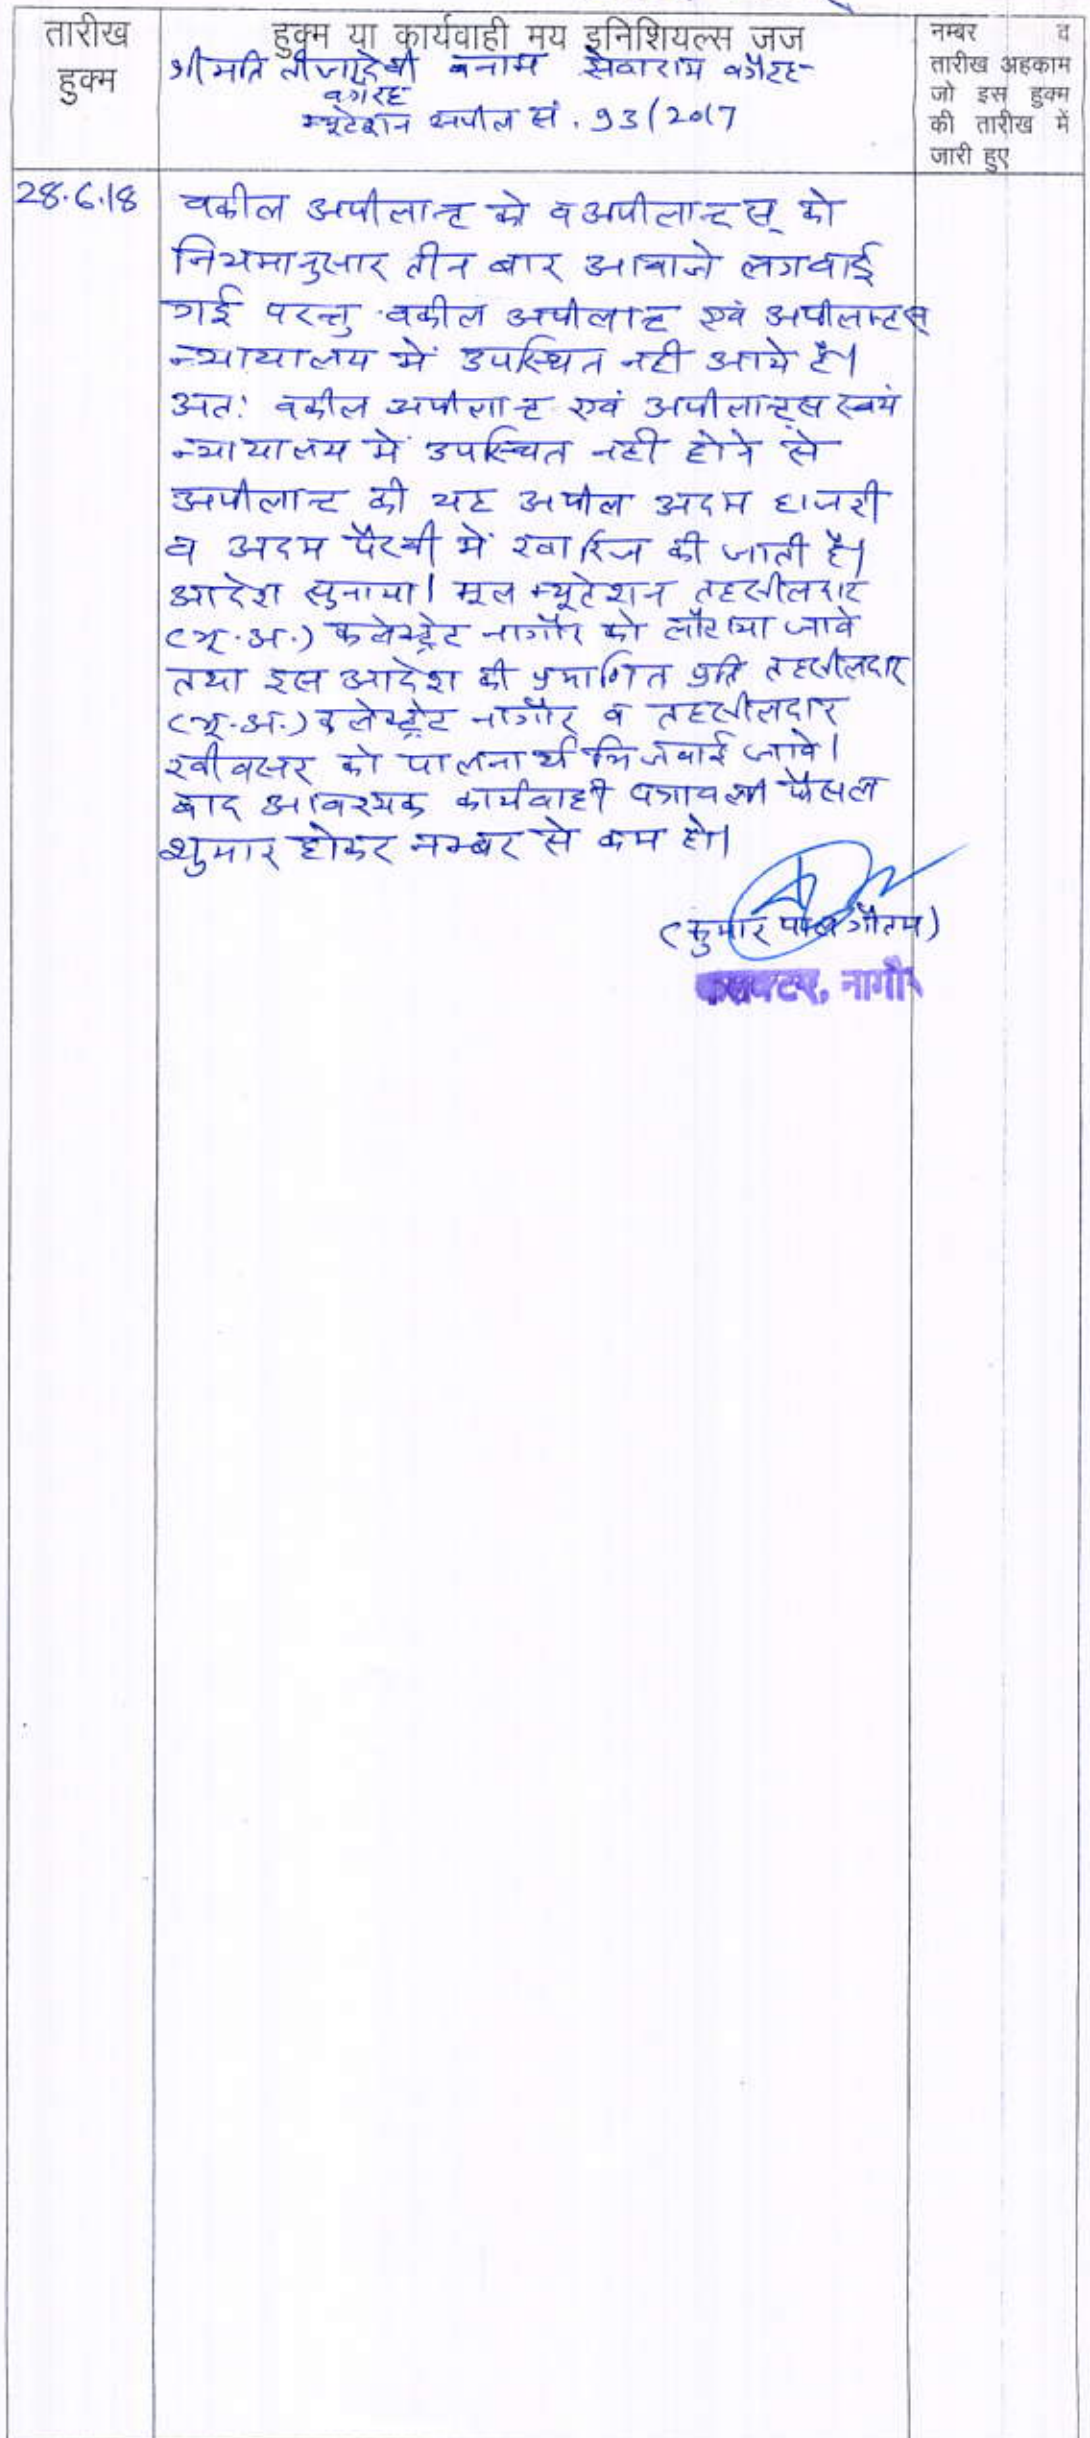 तारीख
हुक्म
हुक्म या कार्यवाही मय इनिशियल्स जज
श्रीमति तीजादेवी बनाम सेवाराम वगैरह
वगैरह
म्यूटेशन अपील सं. 93/2017
नम्बर व
तारीख अहकाम
जो इस हुक्म
की तारीख में
जारी हुए
28.6.18
वकील अपीलान्ट को व अपीलान्टस् को
नियमानुसार तीन बार आवाजे लगवाई
गई परन्तु वकील अपीलान्ट एवं अपीलान्टस्
न्यायालय में उपस्थित नही आये है।
अत: वकील अपीलान्ट एवं अपीलान्ट्स स्वयं
न्यायालय में उपस्थित नही होने से
अपीलान्ट की यह अपील अदम हाजरी
व अदम पैरवी में खारिज की जाती है।
आदेश सुनाया। मूल म्यूटेशन तहसीलदार
(भू.अ.) कलेक्ट्रेट नागौर को लौटाया जावे
तथा इस आदेश की प्रमाणित प्रति तहसीलदार
(भू.अ.) कलेक्ट्रेट नागौर व तहसीलदार
खींवसर को पालनार्थ भिजवाई जावे।
बाद आवश्यक कार्यवाही पत्रावली फैसल
शुमार होकर नम्बर से कम हो।
(कुमार पाल गौतम)
कलक्टर, नागौर